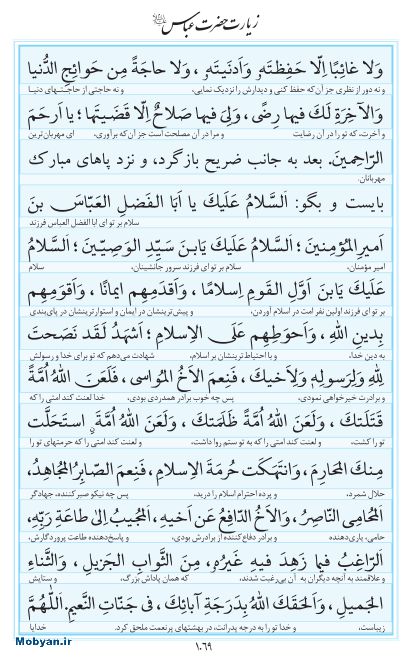 زیارت حضرت عباس
وَلا غائِبًا اِلّا حَفِظتَهُ وَاَدنَیتَهُ ، وَلا حاجَةً مِن حَوائِجِ الدُّنیا
و نه دور از نظری جز آن‌که حفظ کنی و دیدارش را نزدیک نمایی، و نه حاجتی از حاجت‌های دنیا
وَالآخِرَةِ لَكَ فیها رِضًی، وَلِیَ فیها صَلاحٌ اِلّا قَضَیتَها؛ یا اَرحَمَ
و آخرت، که تو را در آن رضایت و مرا در آن مصلحت است جز آن‌که برآوری، ای مهربان‌ترین
الرّاحِمینَ. بعد به جانب ضریح بازگرد، و نزد پاهای مبارک
مهربانان.
بایست و بگو: اَلسَّلامُ عَلَیكَ یا اَبَا الفَضلِ العَبّاسَ بنَ
سلام بر تو ای ابا الفضل العباس فرزند
اَمیرِالمُؤمِنینَ ؛ اَلسَّلامُ عَلَیكَ یَابنَ سَیِّدِ الوَصِیّینَ ؛ اَلسَّلامُ
امیر مؤمنان، سلام بر تو ای فرزند سرور جانشینان، سلام
عَلَیكَ یَابنَ اَوَّلِ القَومِ اِسلامًا ، وَاَقدَمِهِم ایمانًا ، وَاَقوَمِهِم
بر تو ای فرزند اولین نفر امت در اسلام آوردن، و پیش‌ترینشان در ایمان و استوارترینشان در پای‌بندی
بِدینِ اللهِ ، وَاَحوَطِهِم عَلَی الاِسلامِ ؛ اَشهَدُ لَقَد نَصَحتَ
به دین خدا، و با احتیاط‌ترینشان بر اسلام، شهادت می‌دهم که تو برای خدا و رسولش
لِلّهِ وَلِرَسولِهِ وَلِاَخیكَ ، فَنِعمَ الاَخُ المُواسی ، فَلَعَنَ اللهُ اُمَّةً
و برادرت خیرخواهی نمودی، پس چه خوب برادر همدردی بودی، خدا لعنت کند امتی را که
قَتَلَتكَ ، وَلَعَنَ اللهُ اُمَّةً ظَلَمَتكَ ، وَلَعَنَ اللهُ اُمَّةً استَحَلَّت
تو را کشت، و لعنت کند امتی را که به تو ستم روا داشت، و لعنت کند امتی را که حرمتهای تو را
مِنكَ المَحارِمَ، وَانتَهَكَت حُرمَةَ الاِسلامِ ، فَنِعمَ الصّابِرُ المُجاهِدُ،
حلال شمرد، و پرده احترام اسلام را درید، پس چه نیکو صبر کننده، جهادگر
اَلمُحامِی النّاصِرُ ، وَالاَخُ الدّافِعُ عَن اَخیهِ ، اَلمُجیبُ اِلیٰ طاعَةِ رَبِّهِ،
حامی، یاری‌دهنده و برادر دفاع کننده از برادرش بودی، و پاسخ‌دهنده طاعت پروردگارش،
اَلرّاغِبُ فیما زَهِدَ فیهِ غَیرُهُ، مِنَ الثَّوابِ الجَزیلِ ، وَالثَّناءِ
و علاقمند به آنچه دیگران به آن بی‌رغبت شدند، که همان پاداش بزرگ، و ستایش
الجَمیلِ ، وَاَلحَقَكَ اللهُ بِدَرَجَةِ آبائِكَ ، فی جَنّاتِ النَّعیمِ. اَللّٰهُمَّ
زیباست، و خدا تو را به درجه پدرانت، در بهشتهای پرنعمت ملحق کرد. خدایا
Mobyan.ir
۱۰۶۹